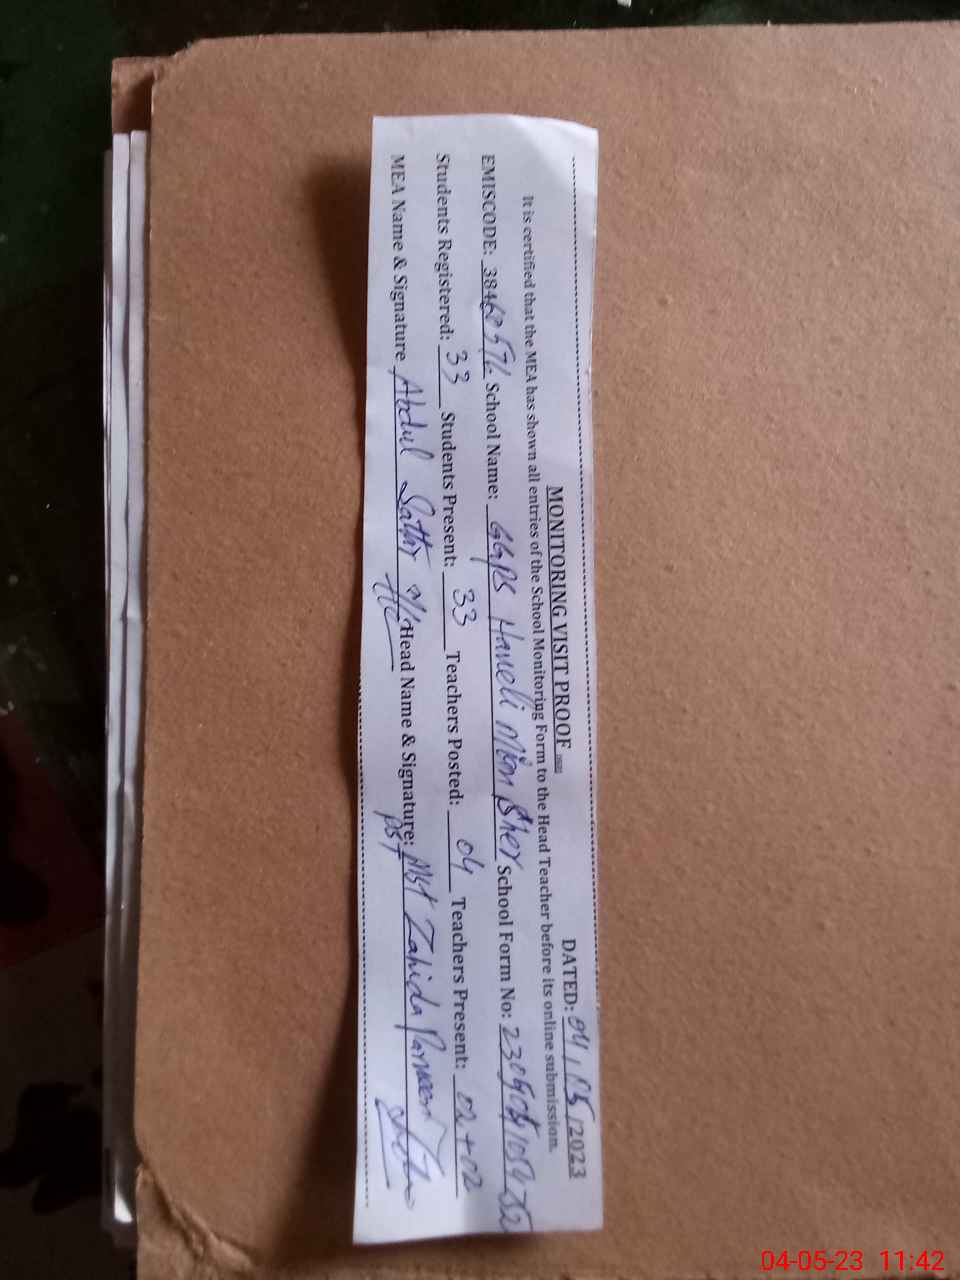 MONITORING VISIT PROOF
DATED: 04/05/2023
It is certified that the MEA has shown all entries of the School Monitoring Form to the Head Teacher before its online submission.
EMISCODE: 38460576 School Name: GGPS Haveli Mian Sher School Form No:
Students Registered: 33 Students Present: 33 Teachers Posted: 04 Teachers Present: 02+02
MEA Name & Signature Abdul Sattir Head Name & Signature: Mst Zahida Parveen
PST
04-05-23 11:42